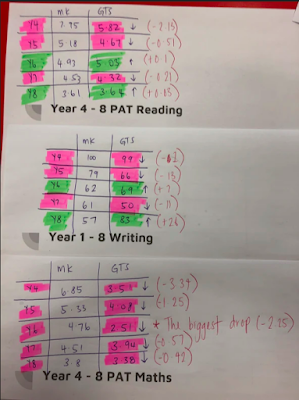 MK GTS
Y4 7.95 5.82 ↓ (-2.13)
Y5 5.18 4.67 ↓ (-0.51)
Y6 4.93 5.03 ↑ (+0.1)
Y7 4.53 4.32 ↓ (-0.21)
Y8 3.61 3.64 ↑ (+0.03)
Year 4 - 8 PAT Reading
MK GTS
Y4 100 99 ↓
Y5 79 66 ↓ (-13)
Y6 62 69 ↑
Y7 61 50 ↓ (-11)
Y8 57 83 ↑ (+26)
Year 1 - 8 Writing
MK GTS
Y4 6.85 3.51 ↓ (-3.34)
Y5 5.33 4.08 ↓ (-1.25)
Y6 4.76 2.51 ↓ * The biggest drop (-2.25)
Y7 4.51 3.94 ↓ (-0.57)
Y8 3.8 3.38 ↓ (-0.42)
Year 4 - 8 PAT Maths